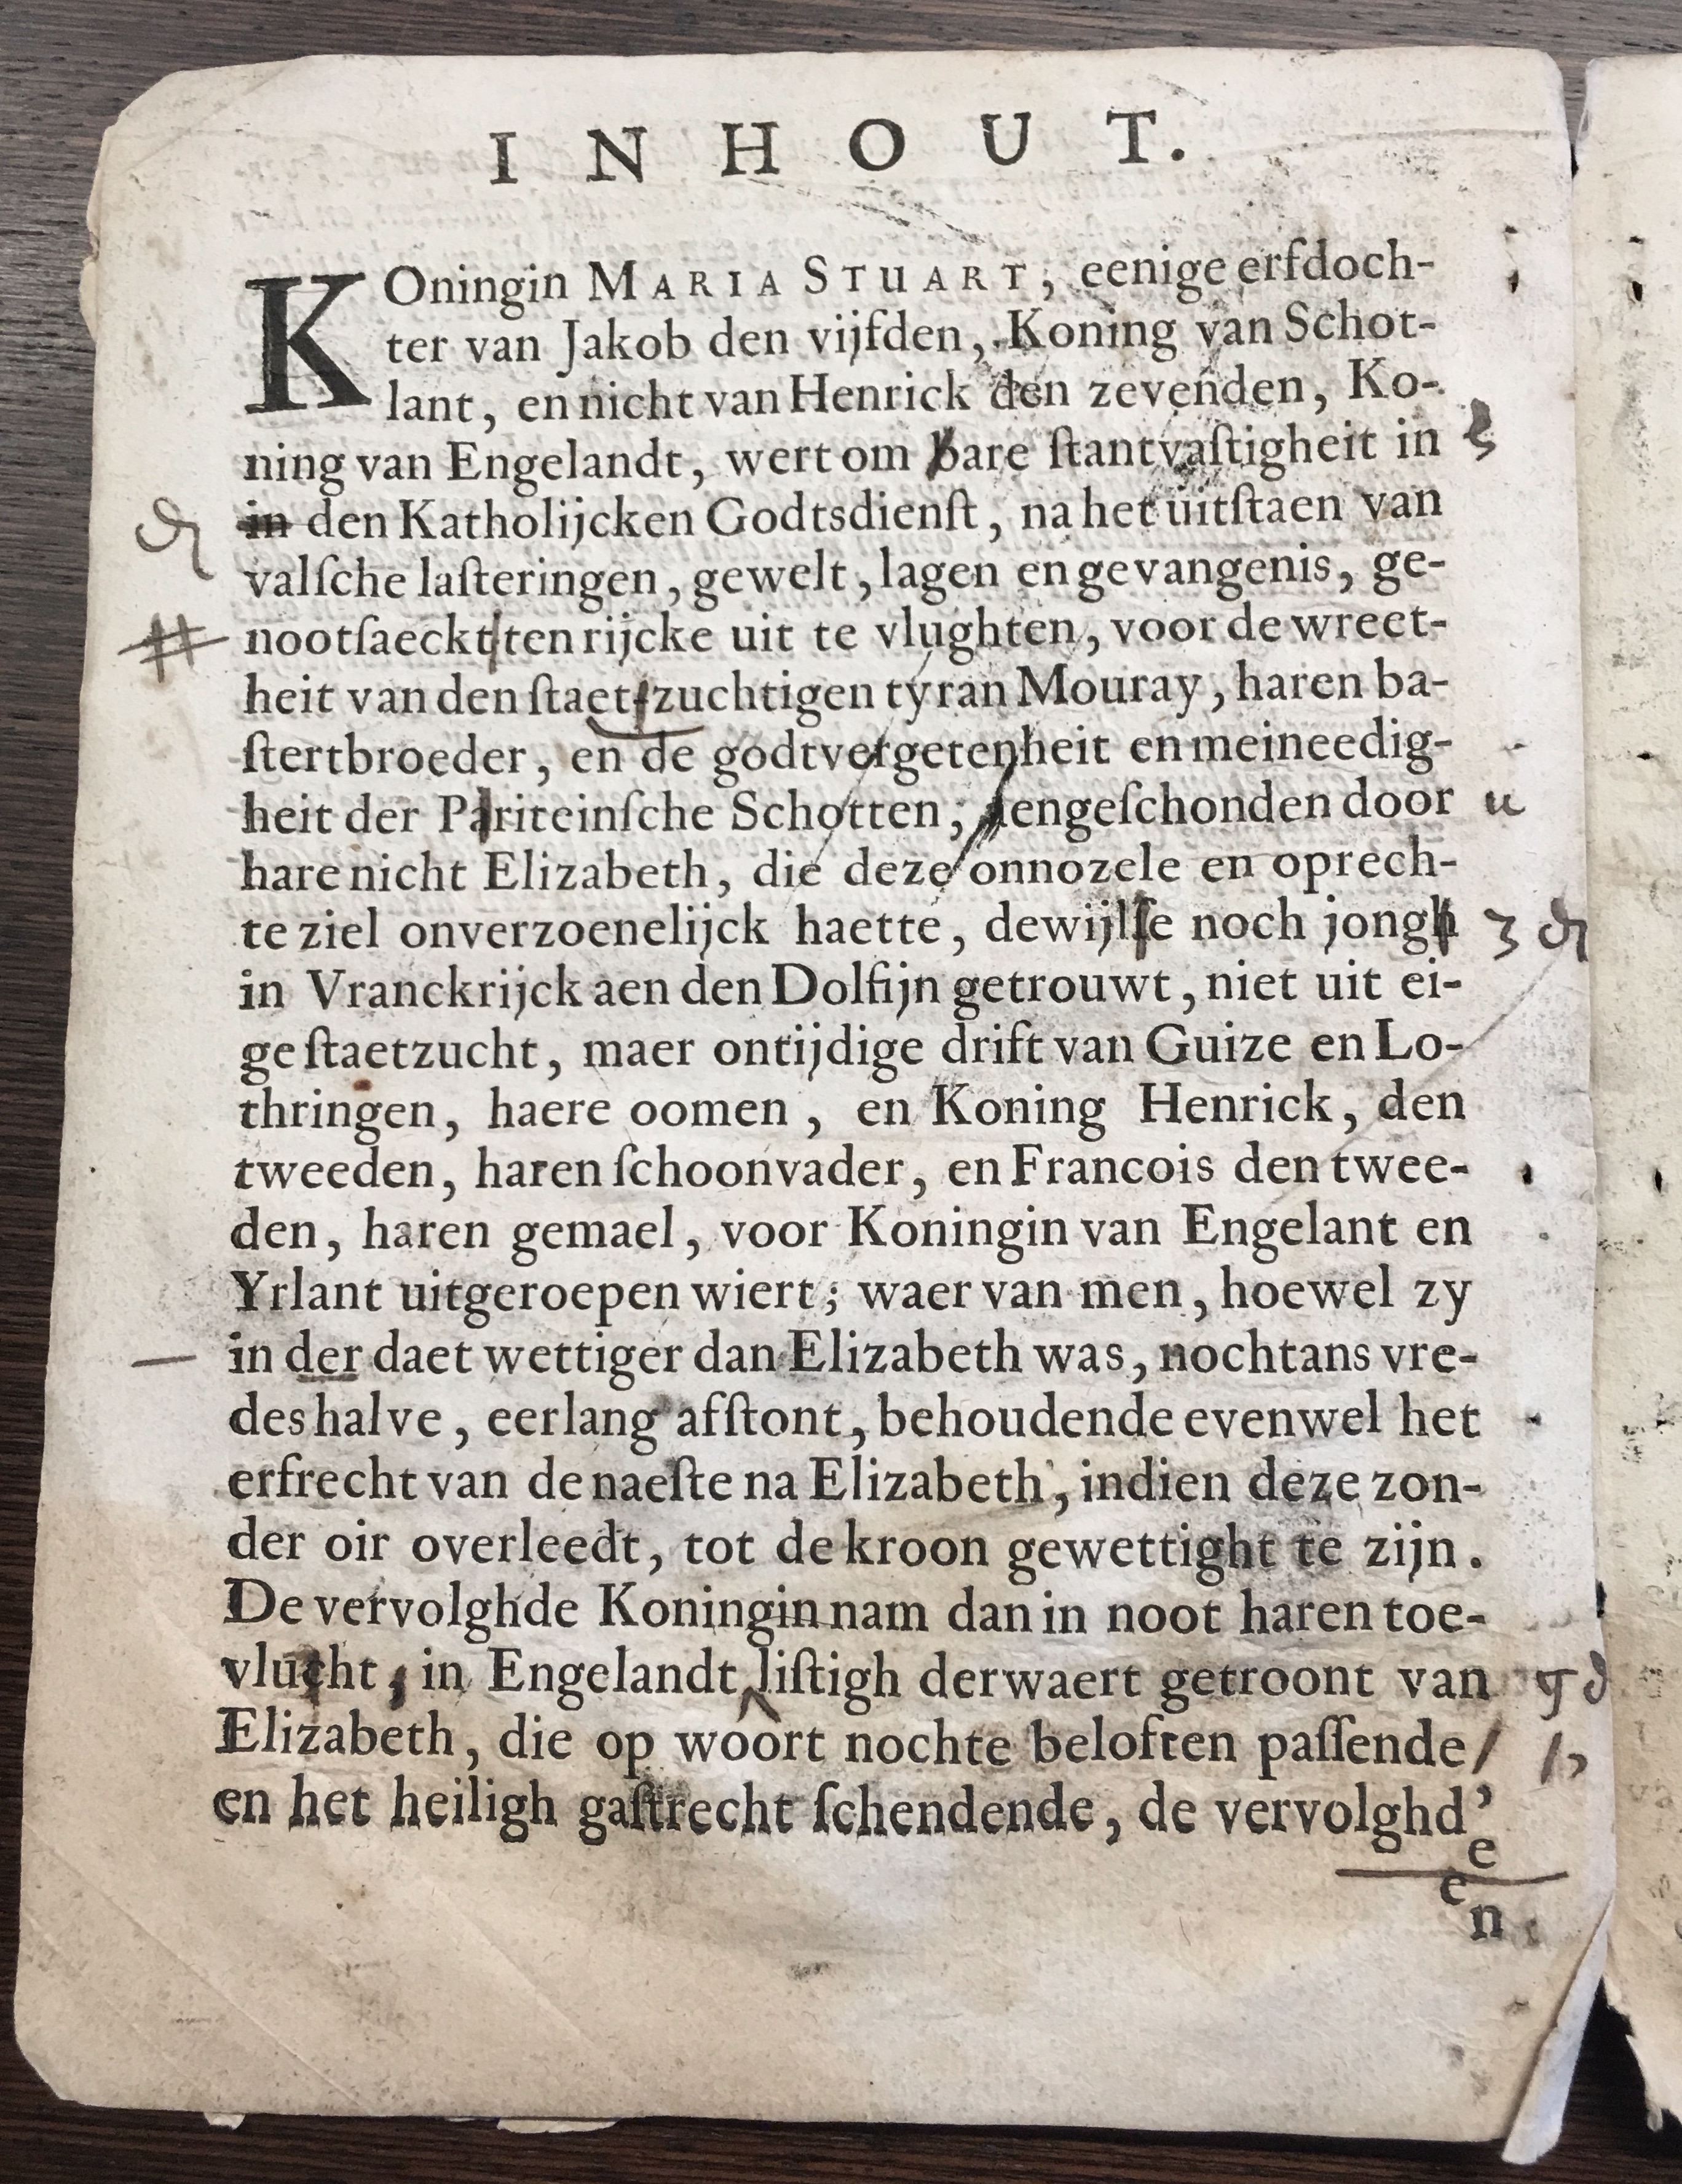 INHOUT.
KOningin MARIA STUART, eenige erfdoch-
ter van Jakob den vijfden, Koning van Schot-
lant, en nicht van Henrick den zevenden, Ko-
ning van Engelandt, wert om bare ſtantvaſtigheit in
in den Katholijcken Godtsdienſt, na het uitſtaen van
valſche laſteringen, gewelt, lagen en gevangenis, ge-
nootſaeckt ten rijcke uit te vlughten, voor de wreet-
heit van den ſtaet-zuchtigen tyran Mouray, haren ba-
ſtertbroeder, en de godtvergetenheit en meineedig-
heit der Pariteinſche Schotten, aengeſchonden door u
hare nicht Elizabeth, die deze onnozele en oprech-
te ziel onverzoenelijck haette, dewijl ſe noch jongh
in Vranckrijck aen den Dolfijn getrouwt, niet uit ei-
ge ſtaetzucht, maer ontijdige drift van Guize en Lo-
thringen, haere oomen, en Koning Henrick, den
tweeden, haren ſchoonvader, en Francois den twee-
den, haren gemael, voor Koningin van Engelant en
Yrlant uitgeroepen wiert; waer van men, hoewel zy
in der daet wettiger dan Elizabeth was, nochtans vre-
deshalve, eerlang afſtont, behoudende evenwel het
erfrecht van de naeſte na Elizabeth, indien deze zon-
der oir overleedt, tot de kroon gewettight te zijn.
De vervolghde Koningin nam dan in noot haren toe-
vlucht, in Engelandt liſtigh derwaert getroont van
Elizabeth, die op woort nochte beloften paſſende /
en het heiligh gaſtrecht ſchendende, de vervolghd’
e
e
n